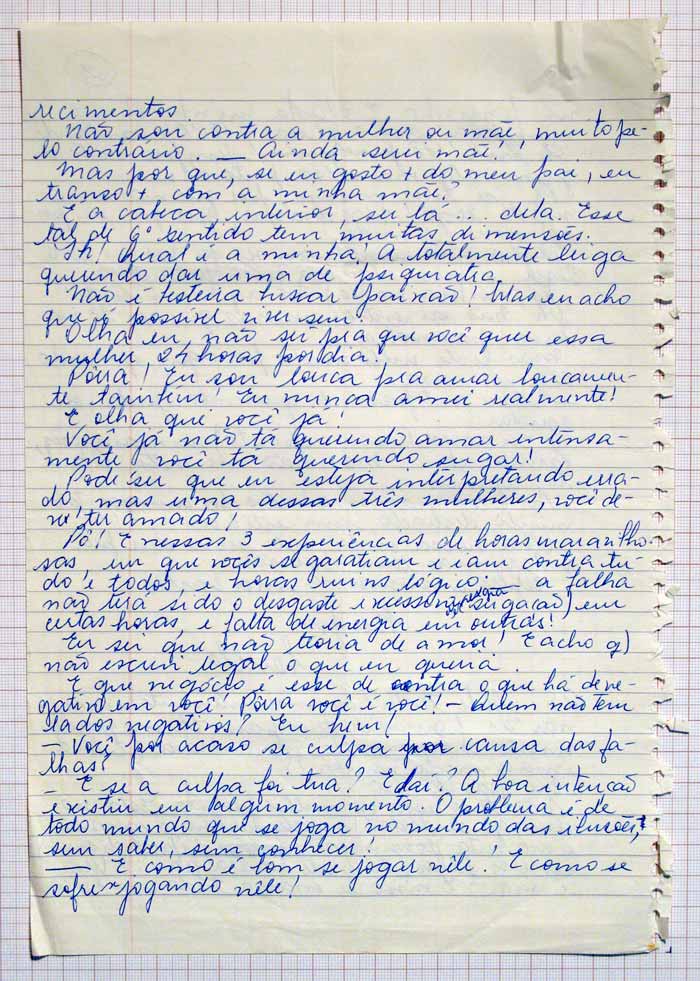 recimentos.
Não sou contra a mulher ou mãe, muito pe-
lo contrário. — Ainda serei mãe!
Mas por que, se eu gosto + do meu pai, eu
transo + com a minha mãe?
É a cabeça, interior, sei lá ... dela. Esse
tal de 6º sentido tem muitas dimensões.
Ih! Qual é a minha! A totalmente leiga
querendo dar uma de psiquiatra.
Não é besteira buscar paixão! Mas eu acho
que é possível viver sem.
Olha eu, não sei pra que você quer essa
mulher, 24 horas por dia.
Pôrra! Eu sou louca pra amar loucamen-
te também! Eu nunca amei realmente!
E olha que você já!
Você já não tá querendo amar intensa-
mente você tá querendo sugar!
Pode ser que eu esteja interpretando erra-
do, mas uma dessas três mulheres, você de-
ve ter amado!
Pô! E nessas 3 experiências de horas maravilho-
sas, em que vocês se garatiam e iam contra tu-
do e todos, e horas ruins lógico. — a falha
não terá sido o desgaste excesso energia sugação) em
certas horas, e falta de energia em outras!
Eu sei que não teoria de amor! E acho q)
não escrevi legal o que eu queria.
E que negócio é esse de contra o que há de ne-
gativo em você! Pôrra você é você! — Quem não tem
lados negativos? Eu hem!
— Você por acaso se culpa por causa das fa-
lhas?
— E se a culpa foi tua? E daí? A boa intenção
existiu em algum momento. O problema é de
todo mundo que se joga no mundo das ilusões,
sem saber, sem conhecer!
— E como é bom se jogar nêle! E como se
sofre jogando nêle!